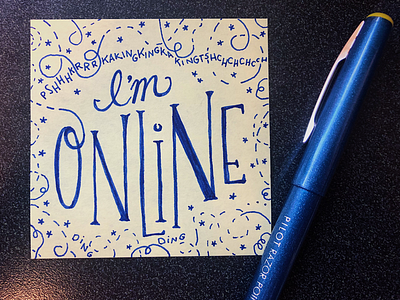 PSHHHKRRRKAKINGKINGKAKINGTSHCHCHCHCCH
I'm
ONLINE
DING
DING
PILOT RAZOR POIN